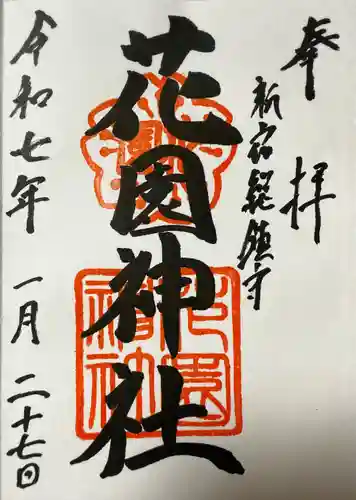 奉拝
新宿総鎮守
花園神社
令和七年 一月 二十七日
花園神社